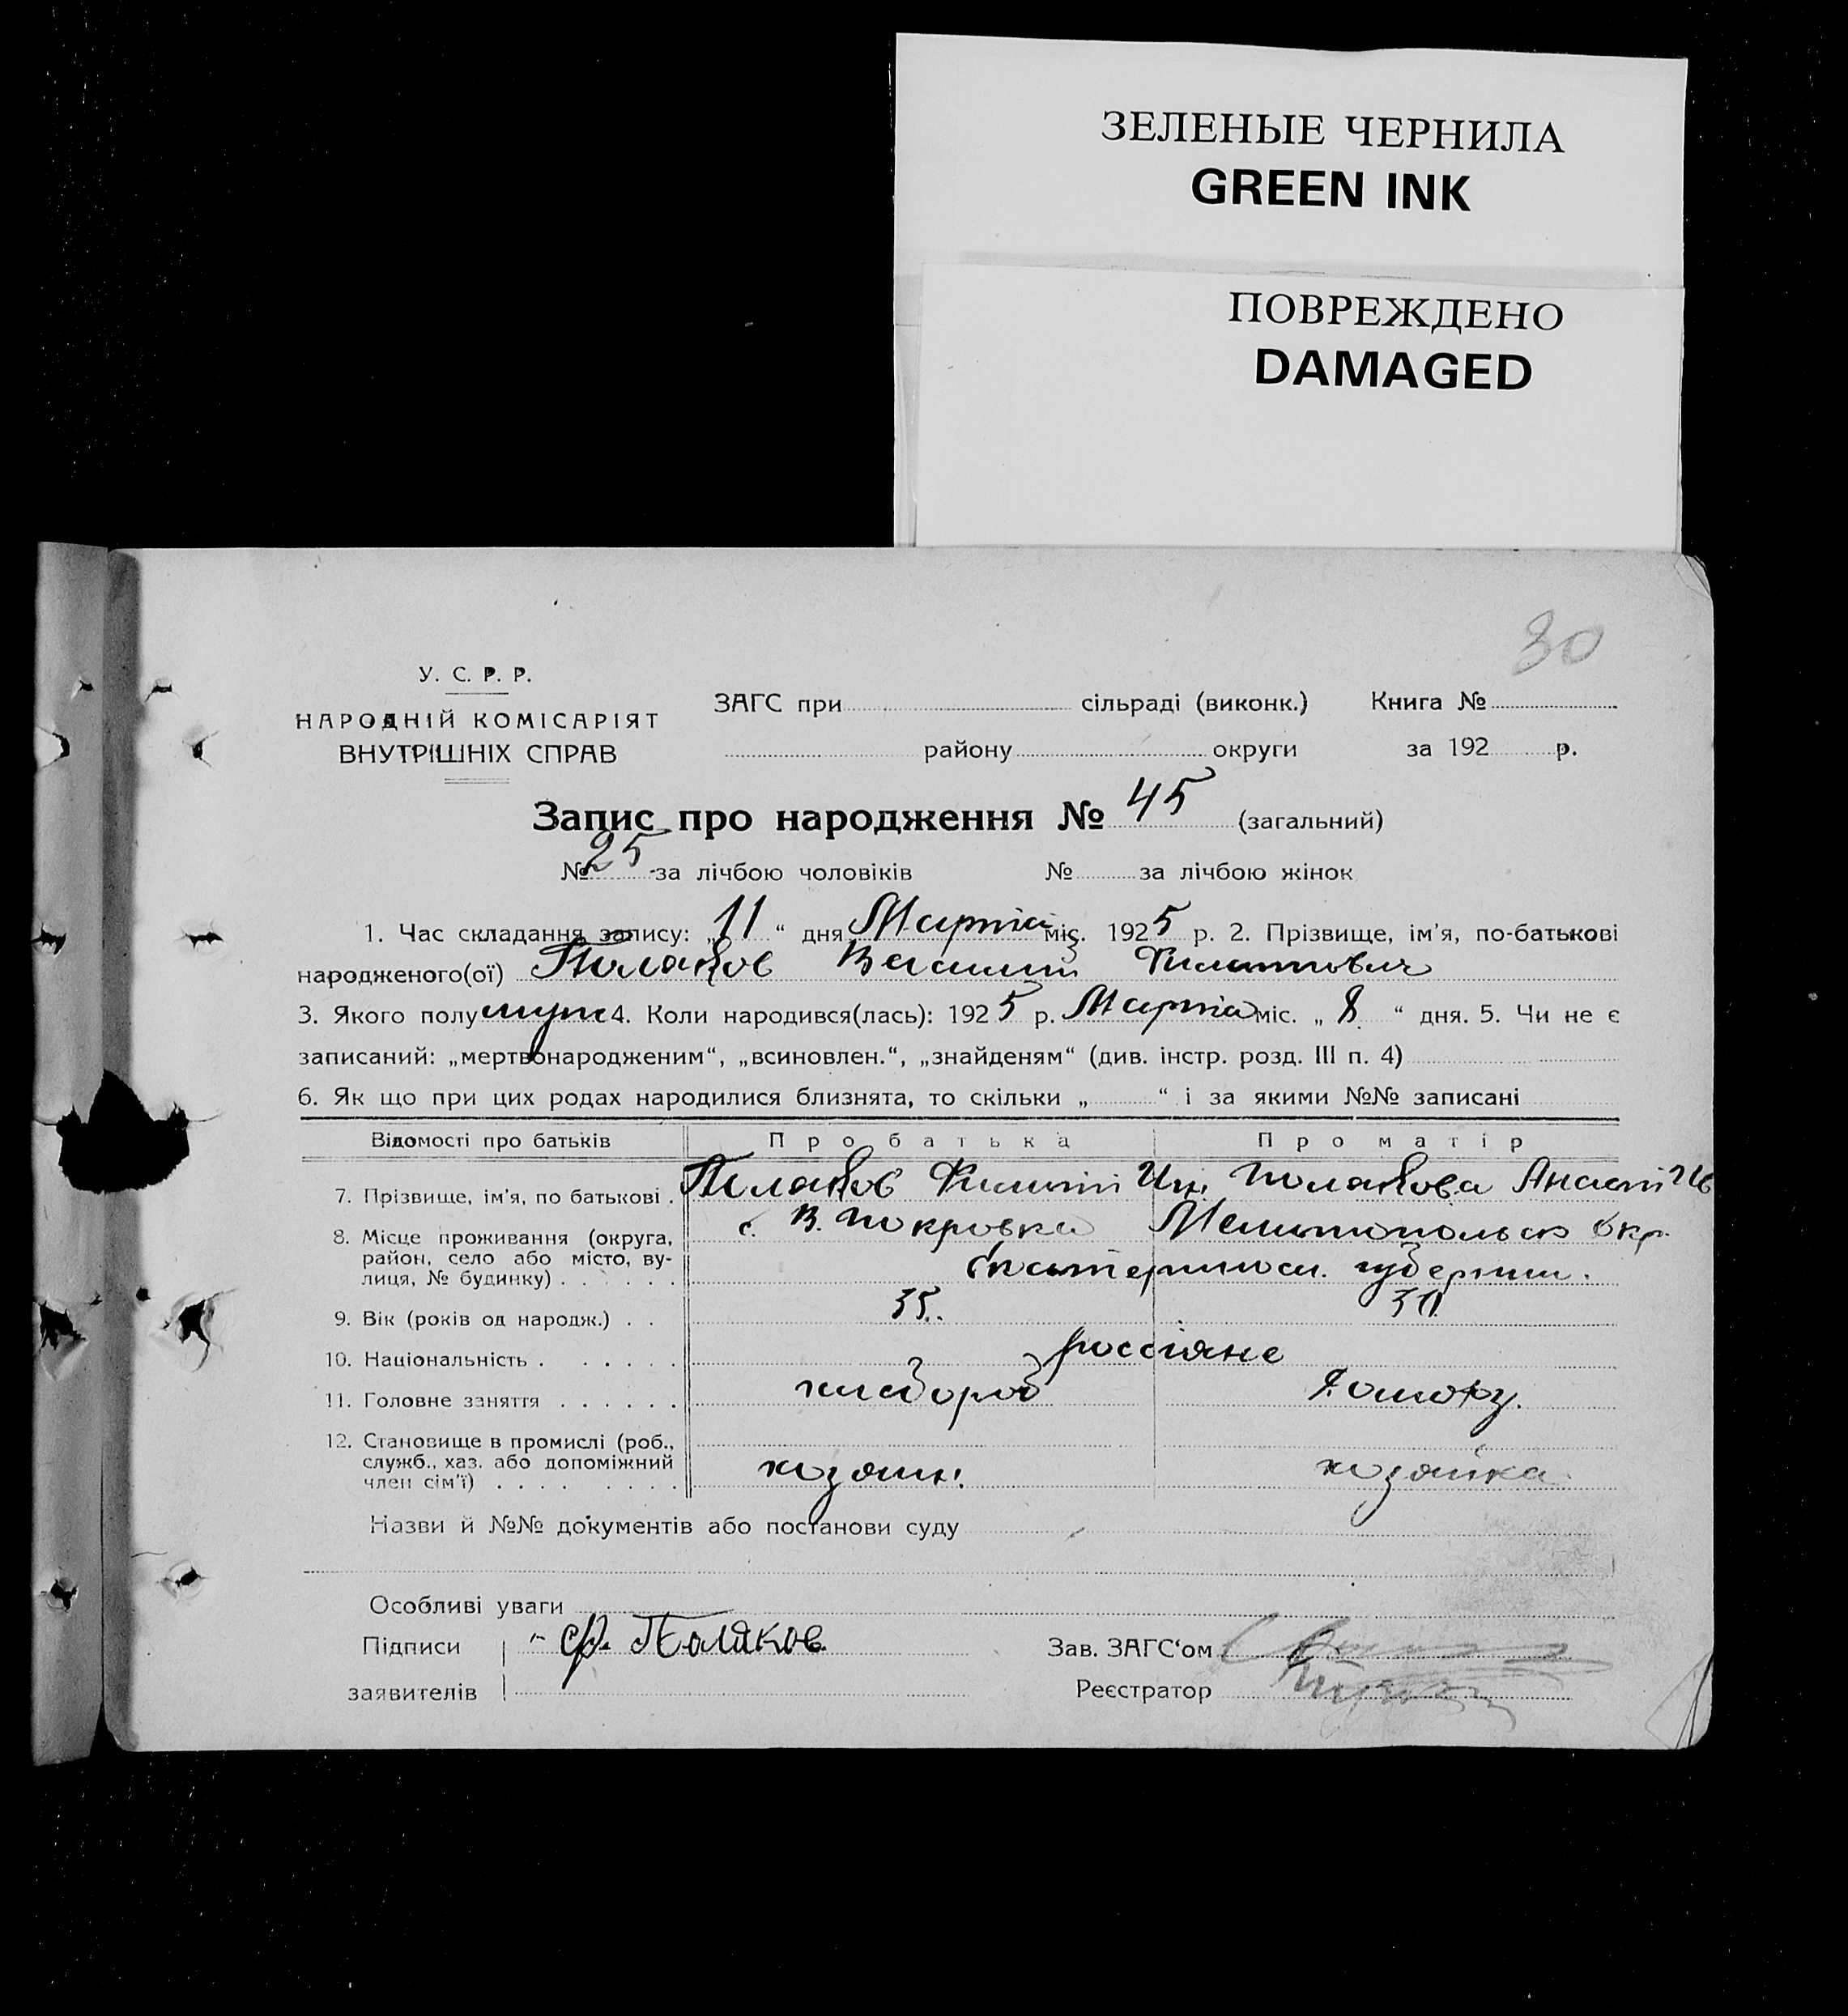 ЗЕЛЕНЫЕ ЧЕРНИЛА
GREEN INK
ПОВРЕЖДЕНО
DAMAGED
30
У. С. Р. Р.
НАРОДНІЙ КОМІСАРІЯТ
ВНУТРІШНІХ СПРАВ
ЗАГС при сільраді (виконк.) Книга №
району округи за 192 р.
Запис про народження № 45 (загальний)
№ 25 за лічбою чоловіків № за лічбою жінок
1. Час складання запису: „11“ дня Марта міс. 1925 р. 2. Прізвище, ім’я, по-батькові
народженого(ої) Поляков Василий Филиппович
3. Якого полу муж 4. Коли народився(лась): 1925 р. Марта міс. „8“ дня. 5. Чи не є
записаний: „мертвонародженим“, „всиновлен.“, „знайденям“ (див. інстр. розд. III п. 4)
6. Як що при цих родах народилися близнята, то скільки „ “ і за якими №№ записані
Відомості про батьків Про батька Про матір
7. Прізвище, ім’я, по батькові . Поляков Филипп Полякова Анаст
8. Місце проживання (округа, с. В. Покровка Мелитопольск окр.
район, село або місто, ву-
лиця, № будинку) . . . . . . Екатериносл. губернии.
9. Вік (років од народж.) . . 35.
10. Національність . . . . . . россіяне
11. Головне заняття . . . . . . хлебороб
12. Становище в промислі (роб.,
служб., хаз. або допоміжний хозяин. хозяйка
член сім’ї) . . . . . . . .
Назви й №№ документів або постанови суду
Особливі уваги
Підписи Ф. Поляков. Зав. ЗАГС‘ом
заявителів Реєстратор